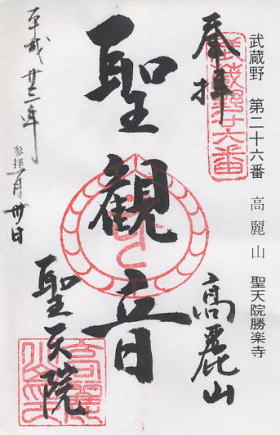 武蔵野 第二十六番 高麗山 聖天院勝楽寺
奉拝
武蔵野廿六番
高麗山
聖観音
聖天院
平成廿三年
参拝 一月卅日